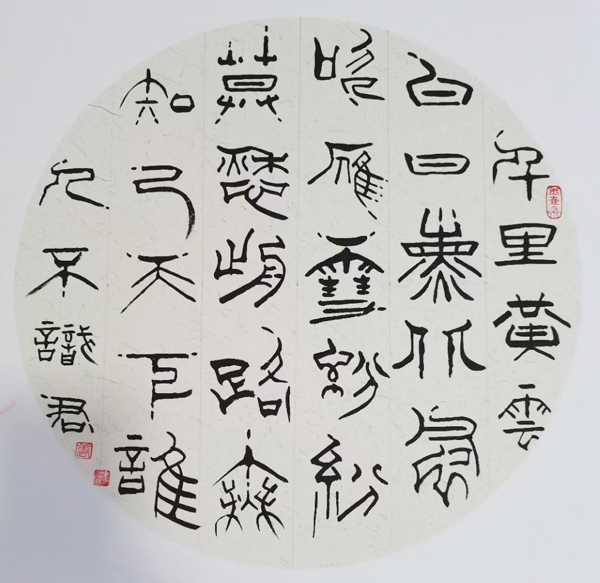 千里黃雲
白日熏北風
吹雁雪紛紛
莫愁前路無
知己天下誰
人不識君